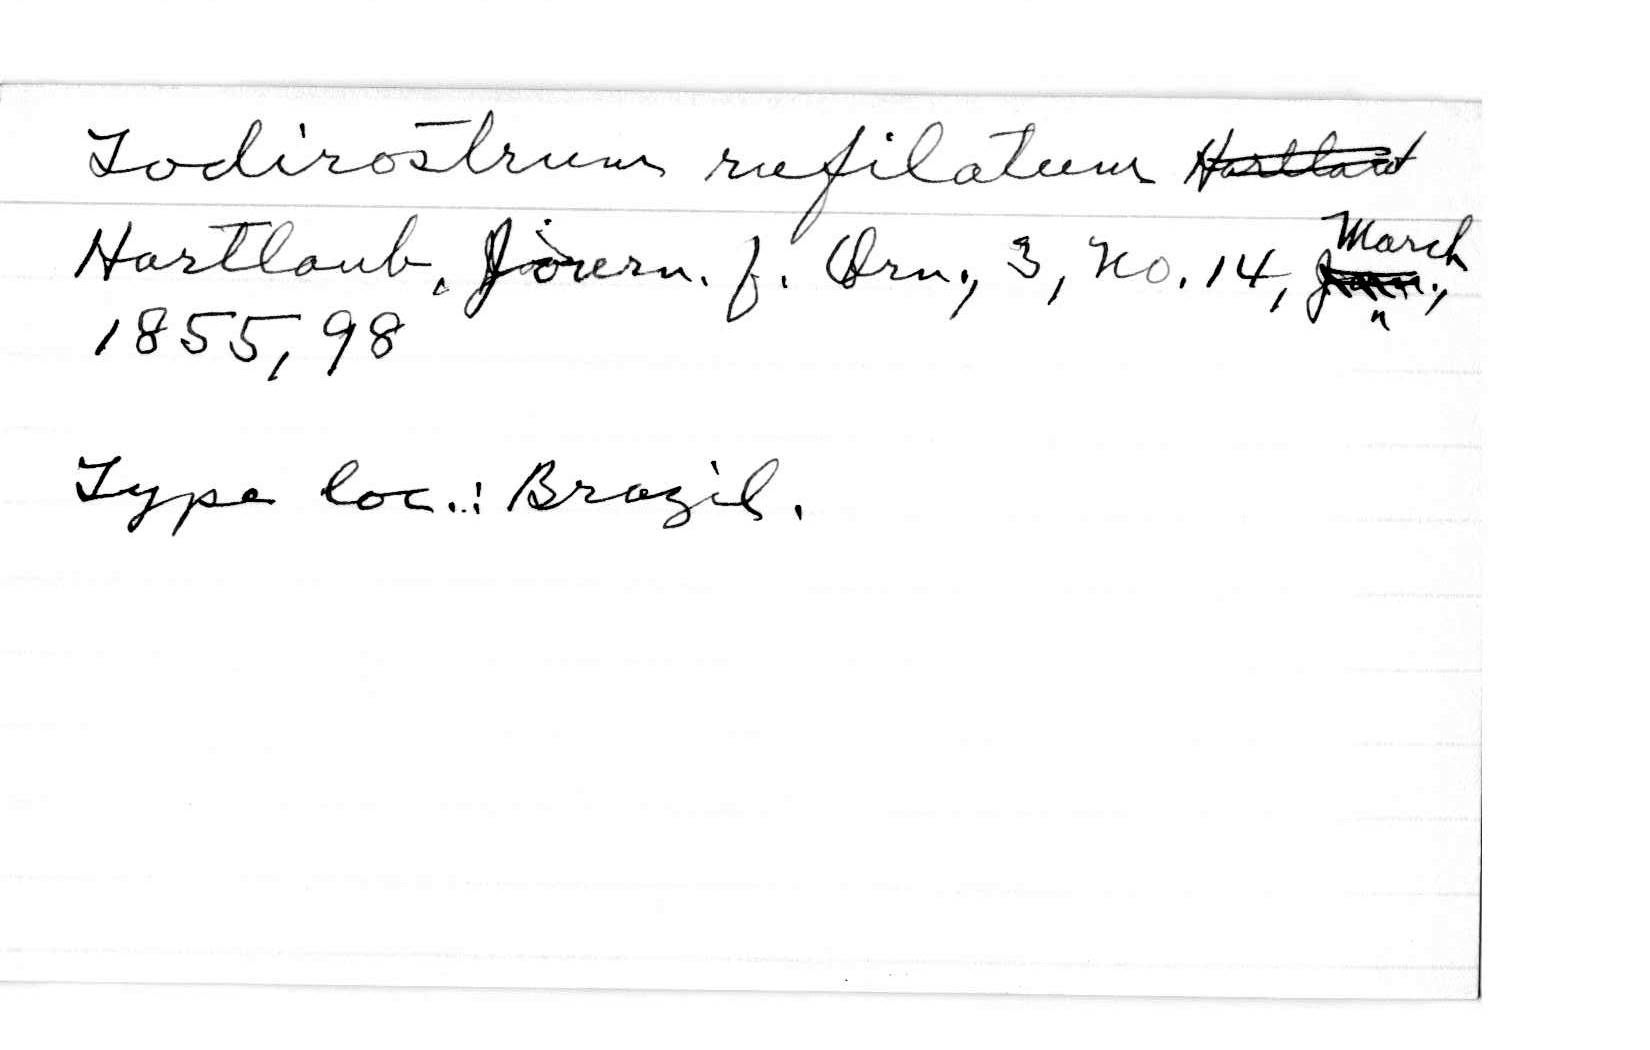 Todirostrum rufilatum
Hartlaub, Journ. f. Orn., 3, no. 14, March
1855, 98
Type loc.: Brazil.